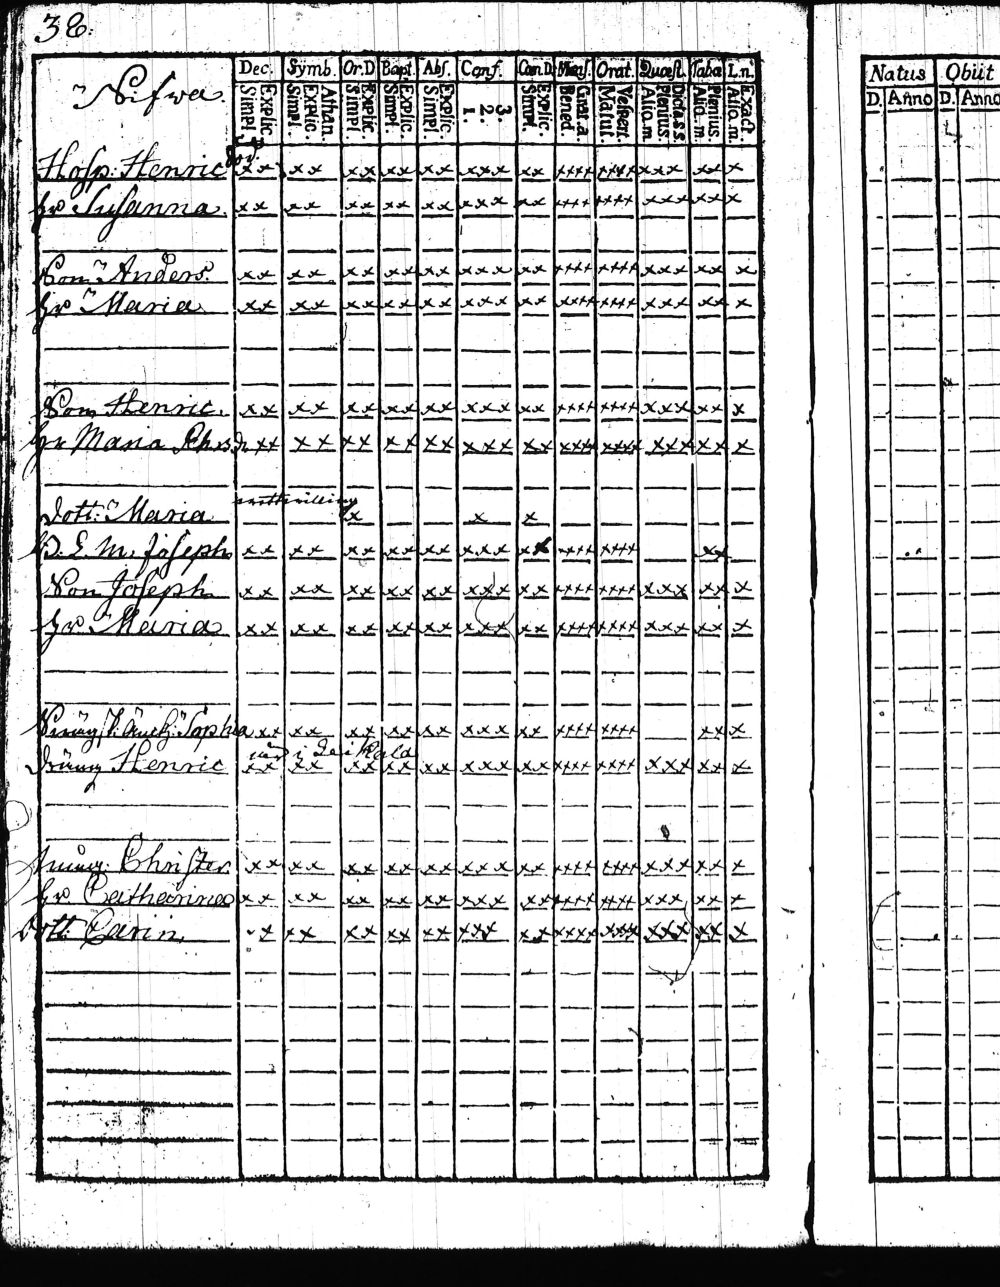 38.
Nifwa.
Dec. Symb. Or.D Bapt. Abs. Conf. Cœn.D. Mens. Orat. Quæst. Taba L.n.
Explic. Simpl. Athan. Explic. Simpl. Explic. Simpl. Explic. Simpl. Explic. Simpl. 3. 2. 1. Explic. Simpl. Grat.a. Bened. Vespert. Matut. Dictas s. Plenius. Aliq.m Plenius. Aliq.m. Exact. Aliq.m.
Natus Obiit
D. Anno D. Anno
Hosp. Henric xx xx xx xx xx xxx xx xxxx xxxx xxx xx x
hr Susanna. xx xx xx xx xx xxx xx xxxx xxxx xxx xx x
Son Anders. xx xx xx xx xx xxx xx xxxx xxxx xxx xx x
hr Maria xx xx xx xx xx xxx xx xxxx xxxx xxx xx x
Son Henric. xx xx xx xx xx xxx xx xxxx xxxx xxx xx x
hr Maria xx xx xx xx xx xxx xx xxxx xxxx xxx xx x
Dott: Maria x x x
Joseph xx xx xx xx xx xxx xx xxxx xxxx xx
Son Joseph xx xx xx xx xx xxx xx xxxx xxxx xxx xx x
hr Maria xx xx xx xx xx xxx xx xxxx xxxx xxx xx x
Sophia xx xx xx xx xx xxx xx xxxx xxxx xx x
Dräng Henric xx xx xx xx xx xxx xx xxxx xxxx xxx xx x
Christer xx xx xx xx xx xxx xx xxxx xxxx xxx xx x
hr Catharina xx xx xx xx xx xxx xx xxxx xxxx xxx xx x
Dott. Carin xx xx xx xx xx xxx xx xxxx xxxx xxx xx x